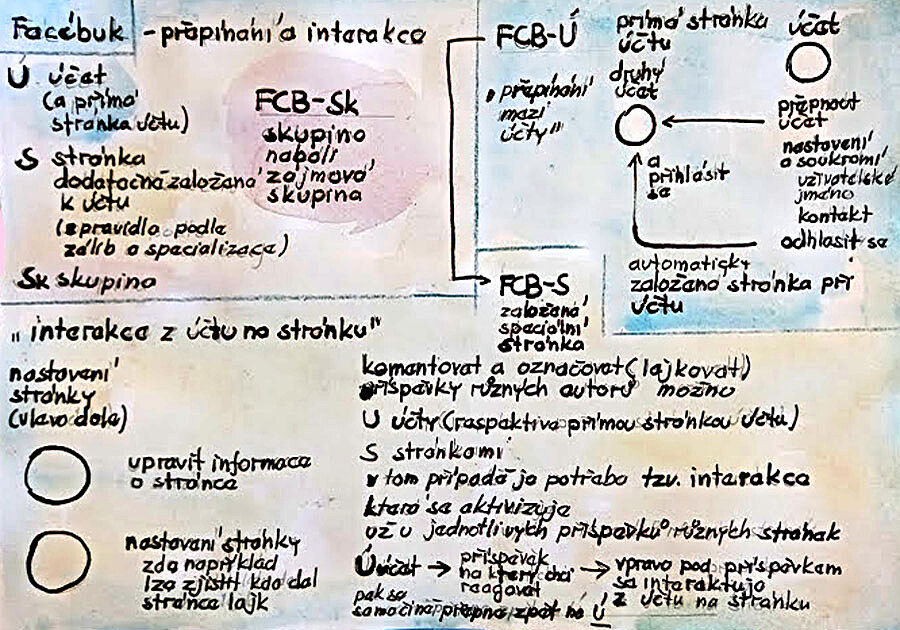 Facebuk - přepínání a interakce
Ú účet
(a přímá
stránka účtu)
S stránka
dodatečně založená
k účtu
(zpravidla podle
zálib a specializace)
Sk skupina
FCB-Sk
skupina
neboli
zájmová
skupina
FCB-Ú
"přepínání
mezi
účty"
přímá stránka
účtu
druhý
účet
a
přihlásit
se
účet
přepnout
účet
nastavení
a soukromí
uživatelské
jméno
kontakt
odhlásit se
automaticky
založená stránka při
účtu
FCB-S
založená
speciální
stránka
"interakce z účtu na stránku"
nastavení
stránky
(vlevo dole)
upravit informace
o stránce
nastavení stránky
zde například
lze zjistit kdo dal
stránce lajk
komentovat a označovat (lajkovat)
příspěvky různých autorů možno
U účty (respektive přímou stránkou účtu)
S stránkami
v tom případě je potřeba tzv. interakce
která se aktivizuje
už u jednotlivých příspěvků různých stránek
Ú účet → příspěvek
na který chci
reagovat
→ vpravo pod příspěvkem
se interaktuje
z účtu na stránku
pak se
samočinně přepne zpět na Ú